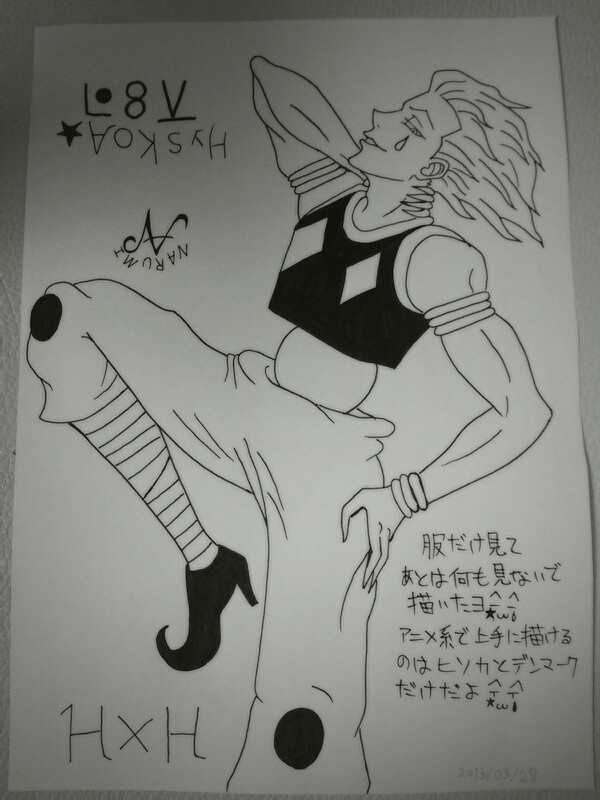 HySKOA★
NARUMI
服だけ見て
あとは何も見ないで
描いたヨ
アニメ系で上手に描ける
のはヒソカとデンマーク
だけだよ
H×H
2013/03/28